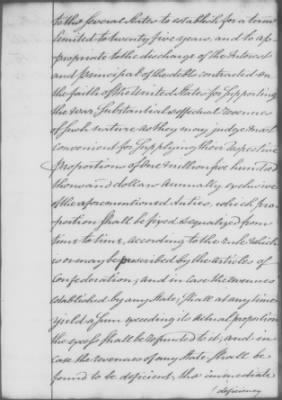 to the several States to establish for a term
limited to twenty five years, and to ap-
propriate to the discharge of the Interest
and principal of the debts contracted on
the faith of the United States for Supporting
the war, Substantial & effectual revenues
of such nature as they may judge most
convenient for Supplying their respective
proportions of one Million five hundred
thousand dollars annually exclusive
of the aforementioned duties, which pro-
portion shall be fixed & equalized from
time to time, according to the rule which
is or may be prescribed by the articles of
Confederation; and in case the revenues
established by any State, shall at any time
yield a Sum exceeding its actual proportion
the excess shall be refunded to it; and in
case the revenues of any State, shall be
found to be deficient, the immediate
deficiency